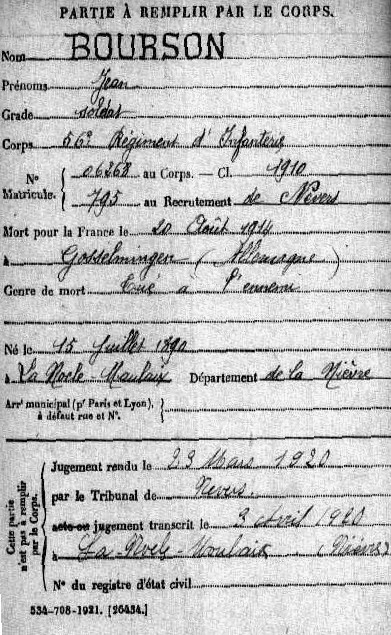 PARTIE À REMPLIR PAR LE CORPS.
Nom BOURSON
Prénoms Jean
Grade soldat
Corps 56e Régiment d'Infanterie
N° Matricule. 06268 au Corps. — Cl. 1910
795 au Recrutement de Nevers
Mort pour la France le 20 Août 1914
à Gosselmingen (Allemagne)
Genre de mort Tué à l'ennemi
Né le 15 Juillet 1890
à La Nocle-Maulaix Département de la Nièvre
Arrt municipal (pr Paris et Lyon), à défaut rue et N°.
Cette partie n'est pas à remplir par le Corps.
Jugement rendu le 23 Mars 1920
par le Tribunal de Nevers
acte ou jugement transcrit le 3 Avril 1920
à La Nocle-Maulaix (Nièvre)
N° du registre d'état civil
534-708-1921. [26434.]